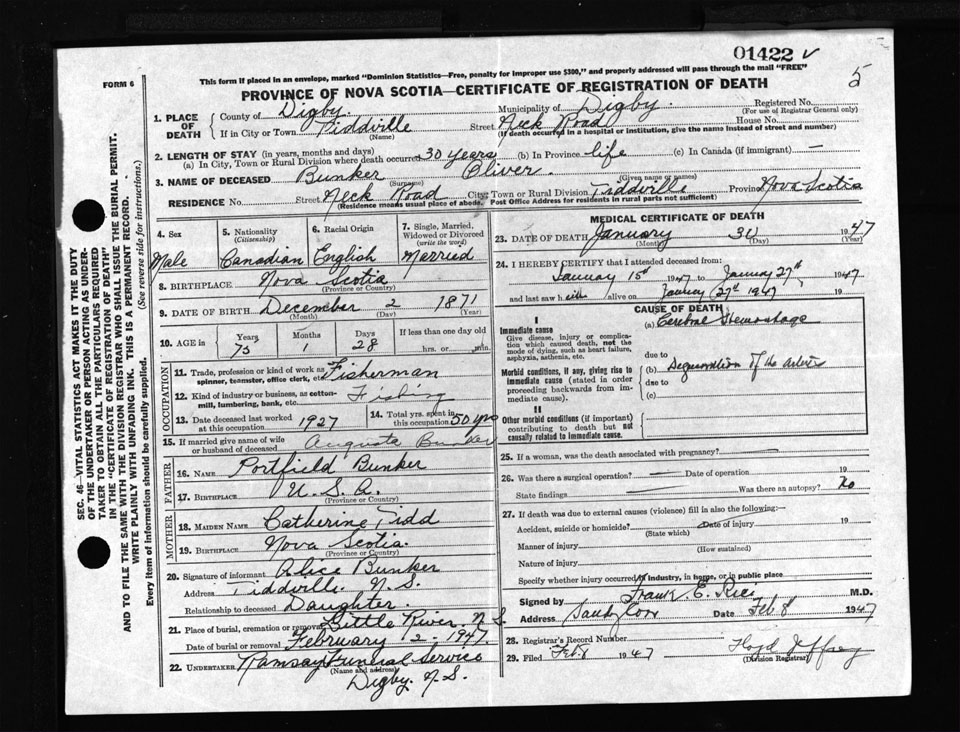 01422 ✓
5
FORM 6
This form if placed in an envelope, marked "Dominion Statistics—Free, penalty for improper use $300," and properly addressed will pass through the mail "FREE"
PROVINCE OF NOVA SCOTIA—CERTIFICATE OF REGISTRATION OF DEATH
1. PLACE OF DEATH
County of Digby Municipality of Digby Registered No.
(For use of Registrar General only)
If in City or Town Tiddville Street Neck Road House No.
(Name) (If death occurred in a hospital or institution, give the name instead of street and number)
2. LENGTH OF STAY (in years, months and days)
(a) In City, Town or Rural Division where death occurred 30 years (b) In Province life (c) In Canada (if immigrant) —
3. NAME OF DECEASED Bunker Oliver.
(Surname) (Given name or names)
RESIDENCE No. Street Neck Road City, Town or Rural Division Tiddville Province Nova Scotia
(Residence means usual place of abode. Post Office Address for residents in rural parts not sufficient)
4. Sex
Male
5. Nationality
(Citizenship)
Canadian
6. Racial Origin
English
7. Single, Married, Widowed or Divorced
(write the word)
Married
8. BIRTHPLACE Nova Scotia
(Province or Country)
9. DATE OF BIRTH December 2 1871
(Month) (Day) (Year)
10. AGE in Years 75 Months 1 Days 28 If less than one day old
hrs. or min.
OCCUPATION
11. Trade, profession or kind of work as spinner, teamster, office clerk, etc. Fisherman
12. Kind of industry or business, as cotton-mill, lumbering, bank, etc. Fishing
13. Date deceased last worked at this occupation 1927
14. Total yrs. spent in this occupation 50 yrs
15. If married give name of wife or husband of deceased Augusta Bunker
FATHER
16. NAME Portfield Bunker
17. BIRTHPLACE U. S. A.
(Province or Country)
MOTHER
18. MAIDEN NAME Catherine Tidd
19. BIRTHPLACE Nova Scotia.
(Province or Country)
20. Signature of informant Alice Bunker
Address Tiddville. N. S.
Relationship to deceased Daughter.
21. Place of burial, cremation or removal Little River. N. S.
Date of burial or removal February 2 - 1947.
22. UNDERTAKER Ramsay Funeral Service
(Name and address)
Digby. N. S.
MEDICAL CERTIFICATE OF DEATH
23. DATE OF DEATH January 30 1947
(Month) (Day) (Year)
24. I HEREBY CERTIFY that I attended deceased from:
January 15th 1947 to January 27th 1947
and last saw h alive on January 27th 1947 19
CAUSE OF DEATH
I
Immediate cause
Give disease, injury or complication which caused death, not the mode of dying, such as heart failure, asphyxia, asthenia, etc.
(a) Cerebral Hemorrhage
due to
Morbid conditions, if any, giving rise to immediate cause (stated in order proceeding backwards from immediate cause).
(b) Degeneration of the arteries
due to
(c)
II
Other morbid conditions (if important) contributing to death but not causally related to immediate cause.
25. If a woman, was the death associated with pregnancy? —
26. Was there a surgical operation? — Date of operation 19
State findings — Was there an autopsy? No
27. If death was due to external causes (violence) fill in also the following:—
Accident, suicide or homicide? Date of injury 19
(State which)
Manner of injury
(How sustained)
Nature of injury
Specify whether injury occurred in industry, in home, or in public place
Signed by Frank E. Rice M.D.
Address Sandy Cove Date Feb 8 1947
28. Registrar's Record Number
29. Filed Feb 8 1947 Floyd Jeffrey
(Division Registrar)
SEC. 46—VITAL STATISTICS ACT MAKES IT THE DUTY
OF THE UNDERTAKER OR PERSON ACTING AS UNDER-
TAKER TO OBTAIN ALL THE PARTICULARS REQUIRED
IN THE "CERTIFICATE OF REGISTRATION OF DEATH"
AND TO FILE THE SAME WITH THE DIVISION REGISTRAR WHO SHALL ISSUE THE BURIAL PERMIT.
WRITE PLAINLY WITH UNFADING INK. THIS IS A PERMANENT RECORD.
Every item of information should be carefully supplied. (See reverse side for instructions.)